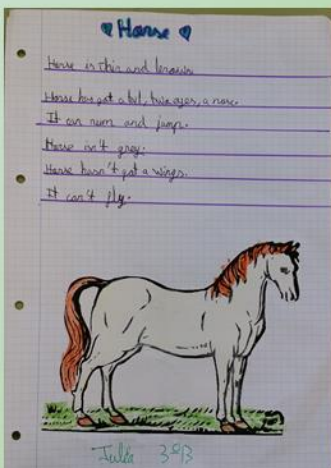 Horse
Horse is thin and brown.
Horse has got a tail, two eyes, a nose.
It can run and jump.
Horse isn't grey.
Horse hasn't got a wings.
It can't fly.
Julka 3B